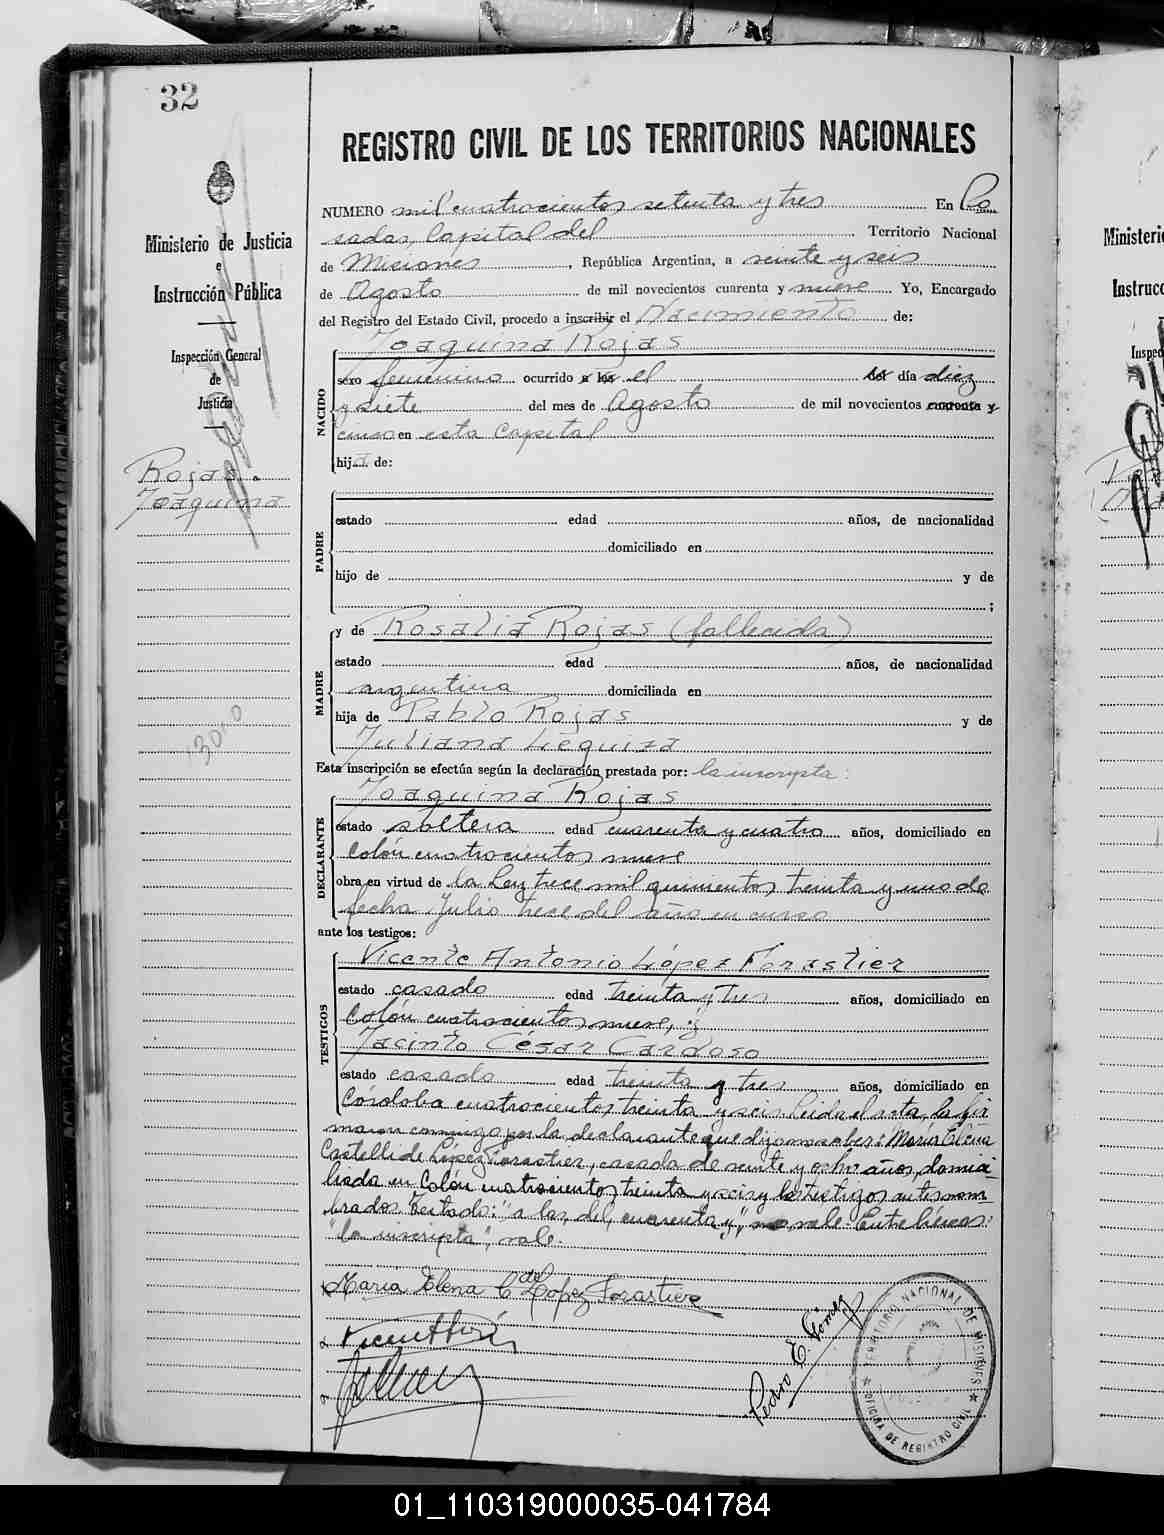 32
REGISTRO CIVIL DE LOS TERRITORIOS NACIONALES
Ministerio de Justicia
e
Instrucción Pública
Inspección General
de
Justicia
Rojas
Joaquina
NUMERO mil cuatrocientos setenta y tres En Po
sadas, Capital del Territorio Nacional
de Misiones, República Argentina, a veinte y seis
de Agosto de mil novecientos cuarenta y nueve Yo, Encargado
del Registro del Estado Civil, procedo a inscribir el Nacimiento de:
NACIDO
Joaquina Rojas
sexo femenino ocurrido a las el del día diez
y siete del mes de Agosto de mil novecientos cuarenta y
cinco en esta Capital
hija de:
PADRE
estado edad años, de nacionalidad
domiciliado en
hijo de y de
;
MADRE
y de Rosalia Rojas (fallecida)
estado edad años, de nacionalidad
argentina domiciliada en
hija de Pablo Rojas y de
Juliana Leguiza
Esta inscripción se efectúa según la declaración prestada por: la inscripta:
DECLARANTE
Joaquina Rojas
estado soltera edad cuarenta y cuatro años, domiciliado en
Colón cuatrocientos nueve
obra en virtud de la Ley trece mil quinientos treinta y uno de
fecha Julio trece del año en curso
ante los testigos:
TESTIGOS
Vicente Antonio López Forastier
estado casado edad treinta y tres años, domiciliado en
Colón cuatrocientos nueve, y
Jacinto César Cardoso
estado casado edad treinta y tres años, domiciliado en
Córdoba cuatrocientos treinta y seis. Leida el acta, la fir
maron conmigo por la declarante que dijo no saber: María Elena
Castelli de López Forastier, casada de veinte y ocho años, domici
liada en Colón cuatrocientos treinta y seis y los testigos antes nom
brados. Testado: "a las, del, cuarenta y", no vale. Entre líneas:
"la inscripta", vale.
María Elena C. de Lopez Forastier
Pedro E. Gómez
TERRITORIO NACIONAL DE MISIONES
OFICINA DE REGISTRO CIVIL
Ministeri
Instrucc
Inspec
01_110319000035-041784